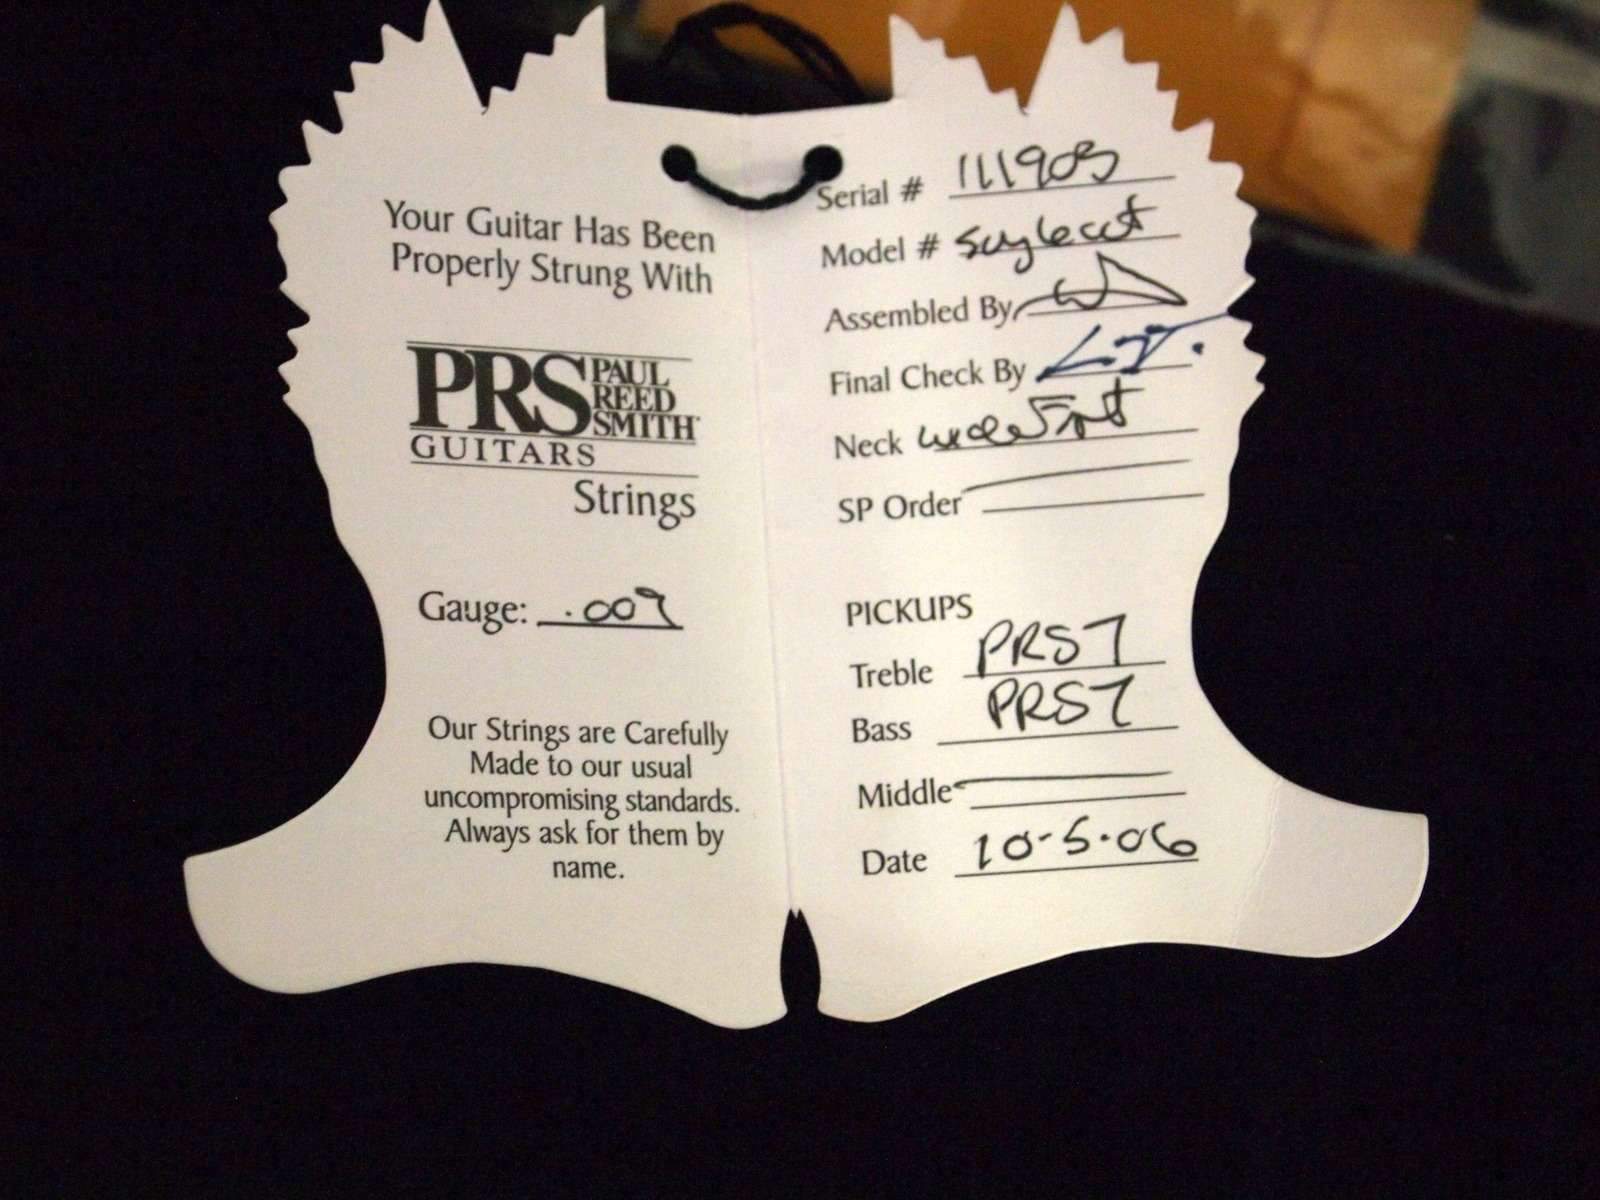 Your Guitar Has Been
Properly Strung With
PRS PAUL
REED
SMITH
GUITARS
Strings
Gauge: .009
Our Strings are Carefully
Made to our usual
uncompromising standards.
Always ask for them by
name.
Serial # 111903
Model # Singlecut
Assembled By
Final Check By
Neck wide Fat
SP Order
PICKUPS
Treble PRS7
Bass PRS7
Middle
Date 10-5-06